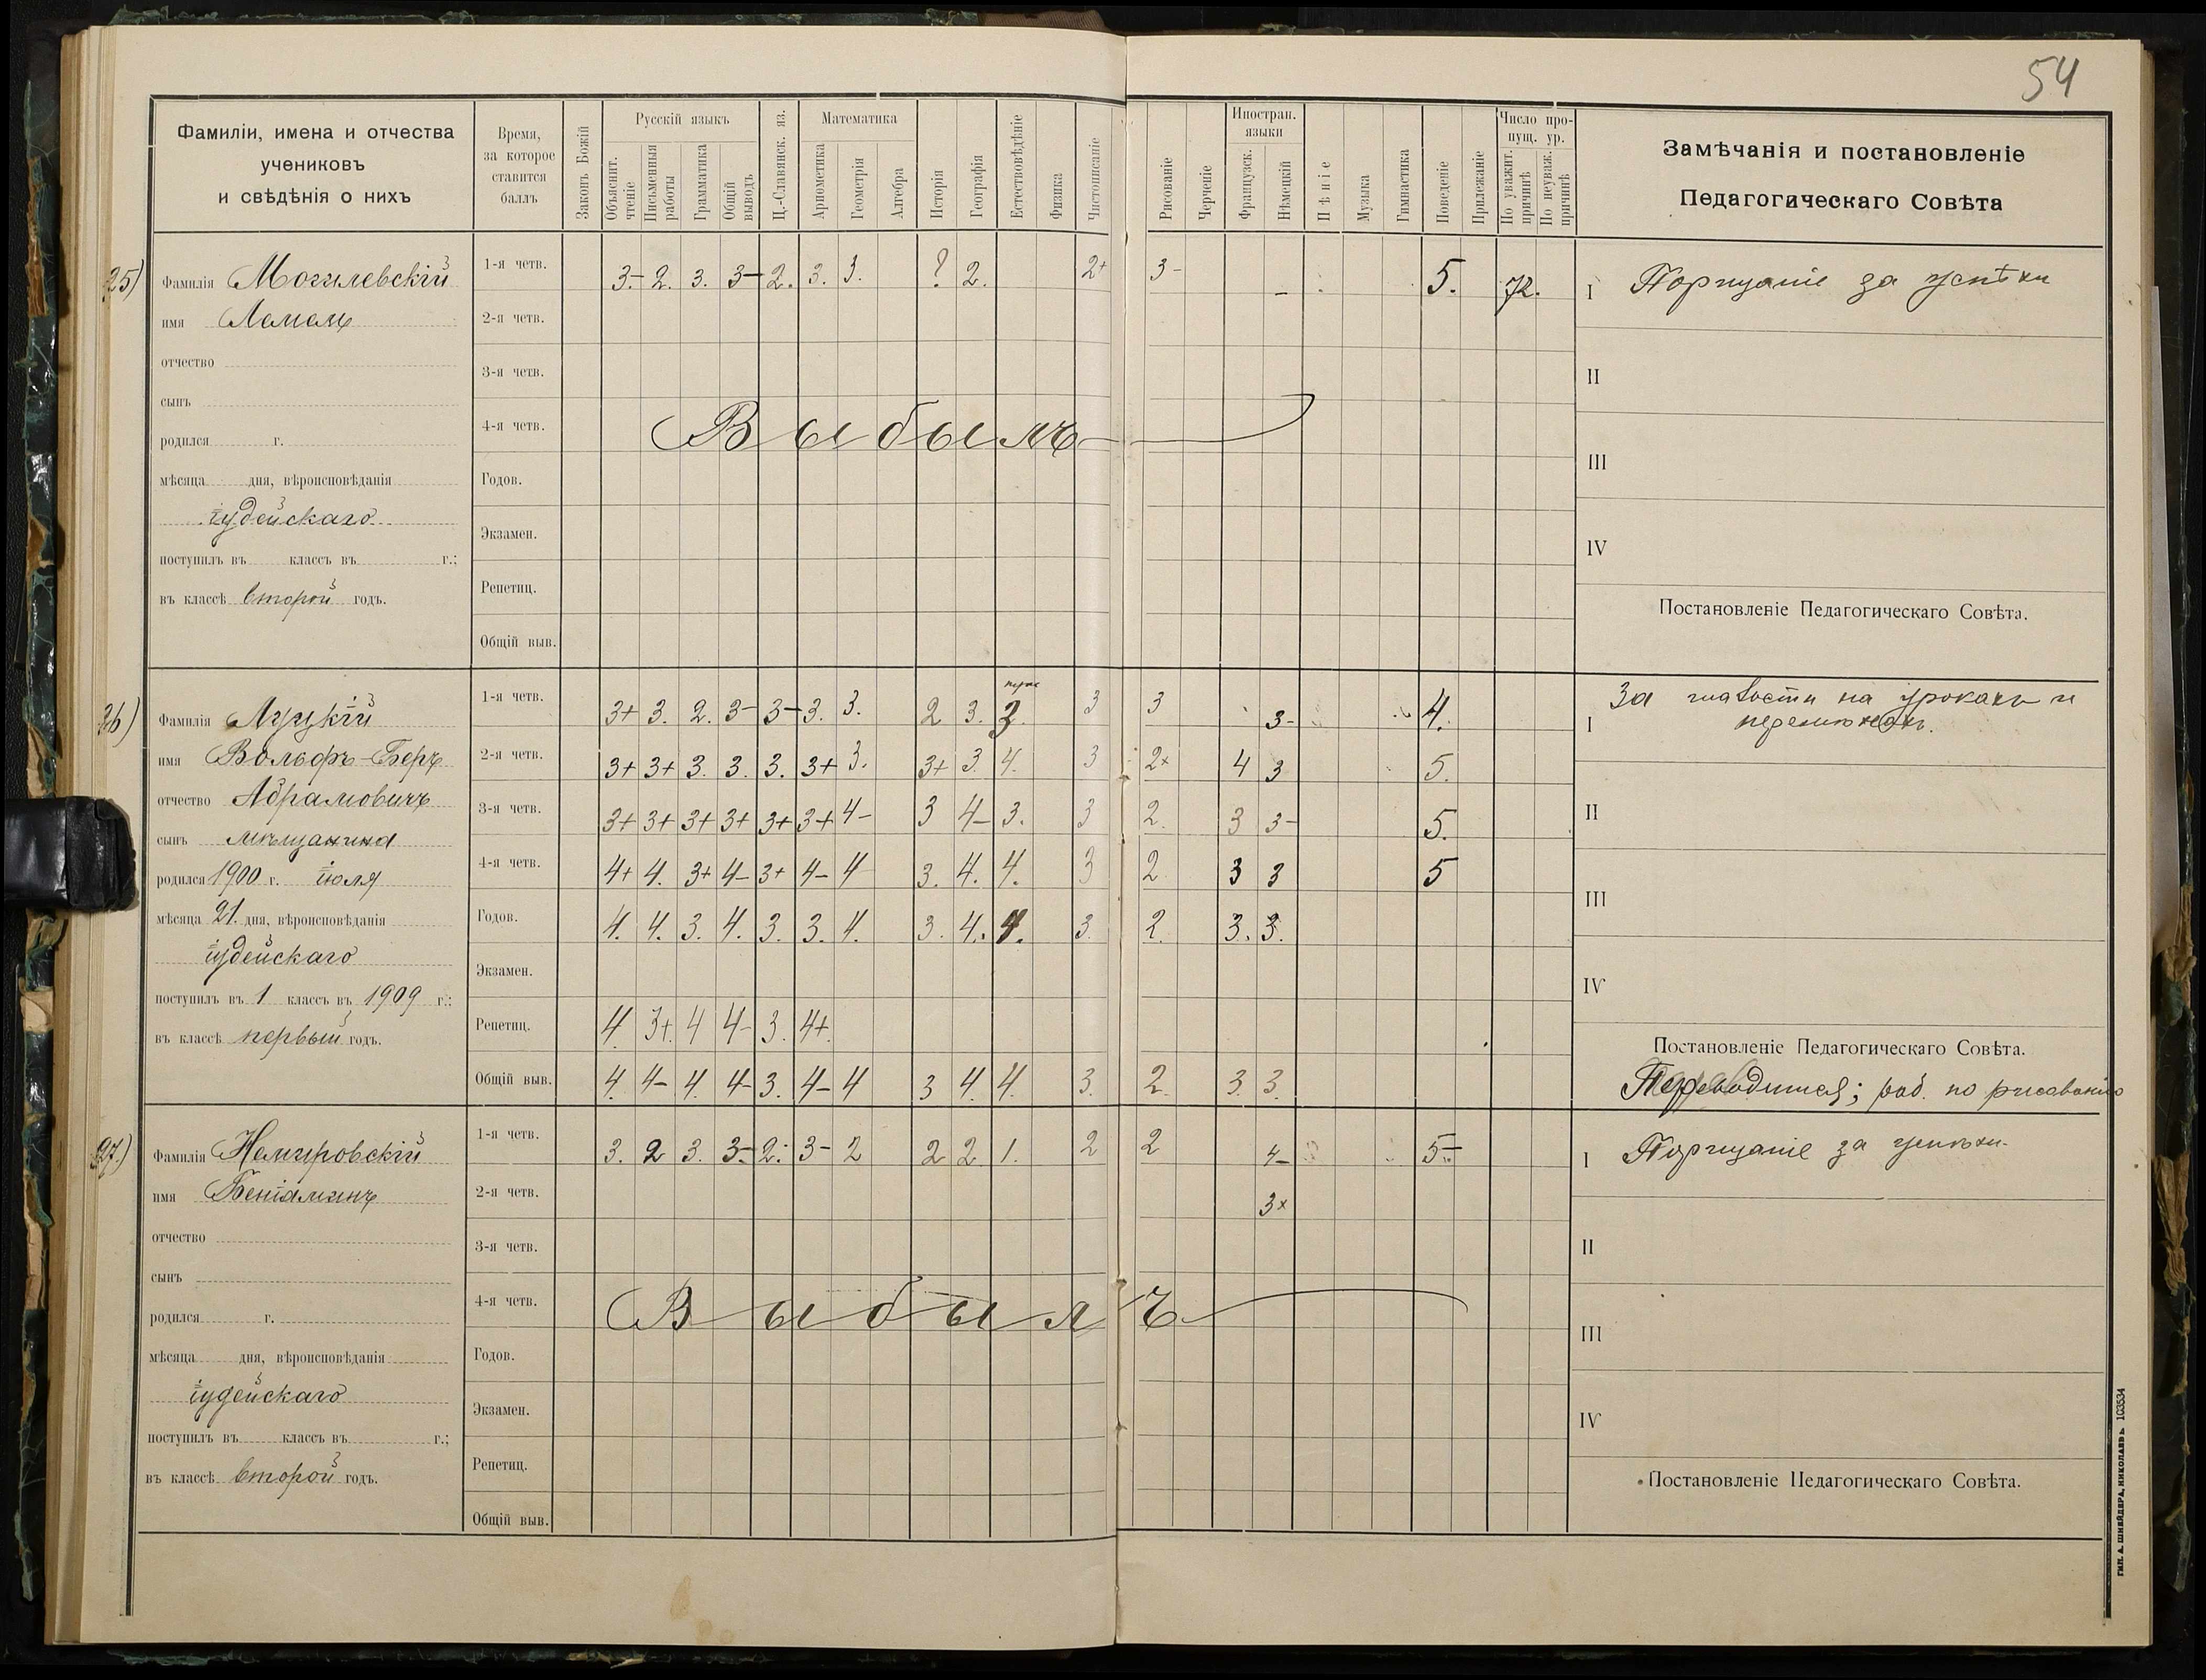 54
Фамиліи, имена и отчества
учениковъ
и свѣдѣнія о нихъ
Время,
за которое
ставится
баллъ
Законъ Божій
Русскій языкъ
Объяснит. чтеніе
Письменныя работы
Грамматика
Общій выводъ
Ц.-Славянск. яз.
Математика
Ариѳметика
Геометрія
Алгебра
Исторія
Географія
Естествовѣдѣніе
Физика
Чистописаніе
Рисованіе
Черченіе
Иностран. языки
Французск.
Нѣмецкій
Пѣніе
Музыка
Гимнастика
Поведеніе
Прилежаніе
Число пропущ. ур.
По уважит. причинѣ
По неуваж. причинѣ
Замѣчанія и постановленіе
Педагогическаго Совѣта
25)
Фамилія Могилевскій
имя
отчество
сынъ
родился г.
мѣсяца дня, вѣроисповѣданія
іудейскаго
поступилъ въ классъ въ г.;
въ классѣ второй годъ.
1-я четв. 3- 2. 3. 3- 2. 3. 3. ? 2. 2+ 3- - 5. 72.
2-я четв.
3-я четв.
4-я четв.
Выбылъ
Годов.
Экзамен.
Репетиц.
Общій выв.
I Порицаніе за успѣхи
II
III
IV
Постановленіе Педагогическаго Совѣта.
26)
Фамилія Луцкій
имя Вольфъ-Беръ
отчество Абрамовичъ
сынъ мѣщанина
родился 1900 г. іюля
мѣсяца 21 дня, вѣроисповѣданія
іудейскаго
поступилъ въ 1 классъ въ 1909 г.:
въ классѣ первый годъ.
1-я четв. 3+ 3. 2. 3- 3- 3. 3. 2 3. 3. 3 3 3- 4.
2-я четв. 3+ 3+ 3. 3. 3. 3+ 3. 3+ 3 4. 3 2+ 4 3 5.
3-я четв. 3+ 3+ 3+ 3+ 3+ 3+ 4- 3 4- 3. 3 2. 3 3- 5.
4-я четв. 4+ 4. 3+ 4- 3+ 4- 4 3. 4. 4. 3 2 3 3 5
Годов. 4. 4. 3. 4. 3. 3. 4. 3. 4. 4. 3. 2. 3. 3.
Экзамен.
Репетиц. 4 3+ 4 4- 3. 4+
Общій выв. 4. 4- 4. 4- 3. 4- 4 3 4. 4. 3. 2. 3. 3.
I За шалости на урокахъ и
перемѣнахъ.
II
III
IV
Постановленіе Педагогическаго Совѣта.
Переводится; раб. по рисованію
27)
Фамилія Немировскій
имя Веніаминъ
отчество
сынъ
родился г.
мѣсяца дня, вѣроисповѣданія
іудейскаго
поступилъ въ классъ въ г.;
въ классѣ второй годъ.
1-я четв. 3. 2 3. 3- 2. 3- 2 2 2 1. 2 2 4- 5-
2-я четв. 3+
3-я четв.
4-я четв.
Выбылъ
Годов.
Экзамен.
Репетиц.
Общій выв.
I Порицаніе за успѣхи.
II
III
IV
Постановленіе Педагогическаго Совѣта.
ТИП. А. ШНЕЙДЕРА, НИКОЛАЕВЪ. 103534